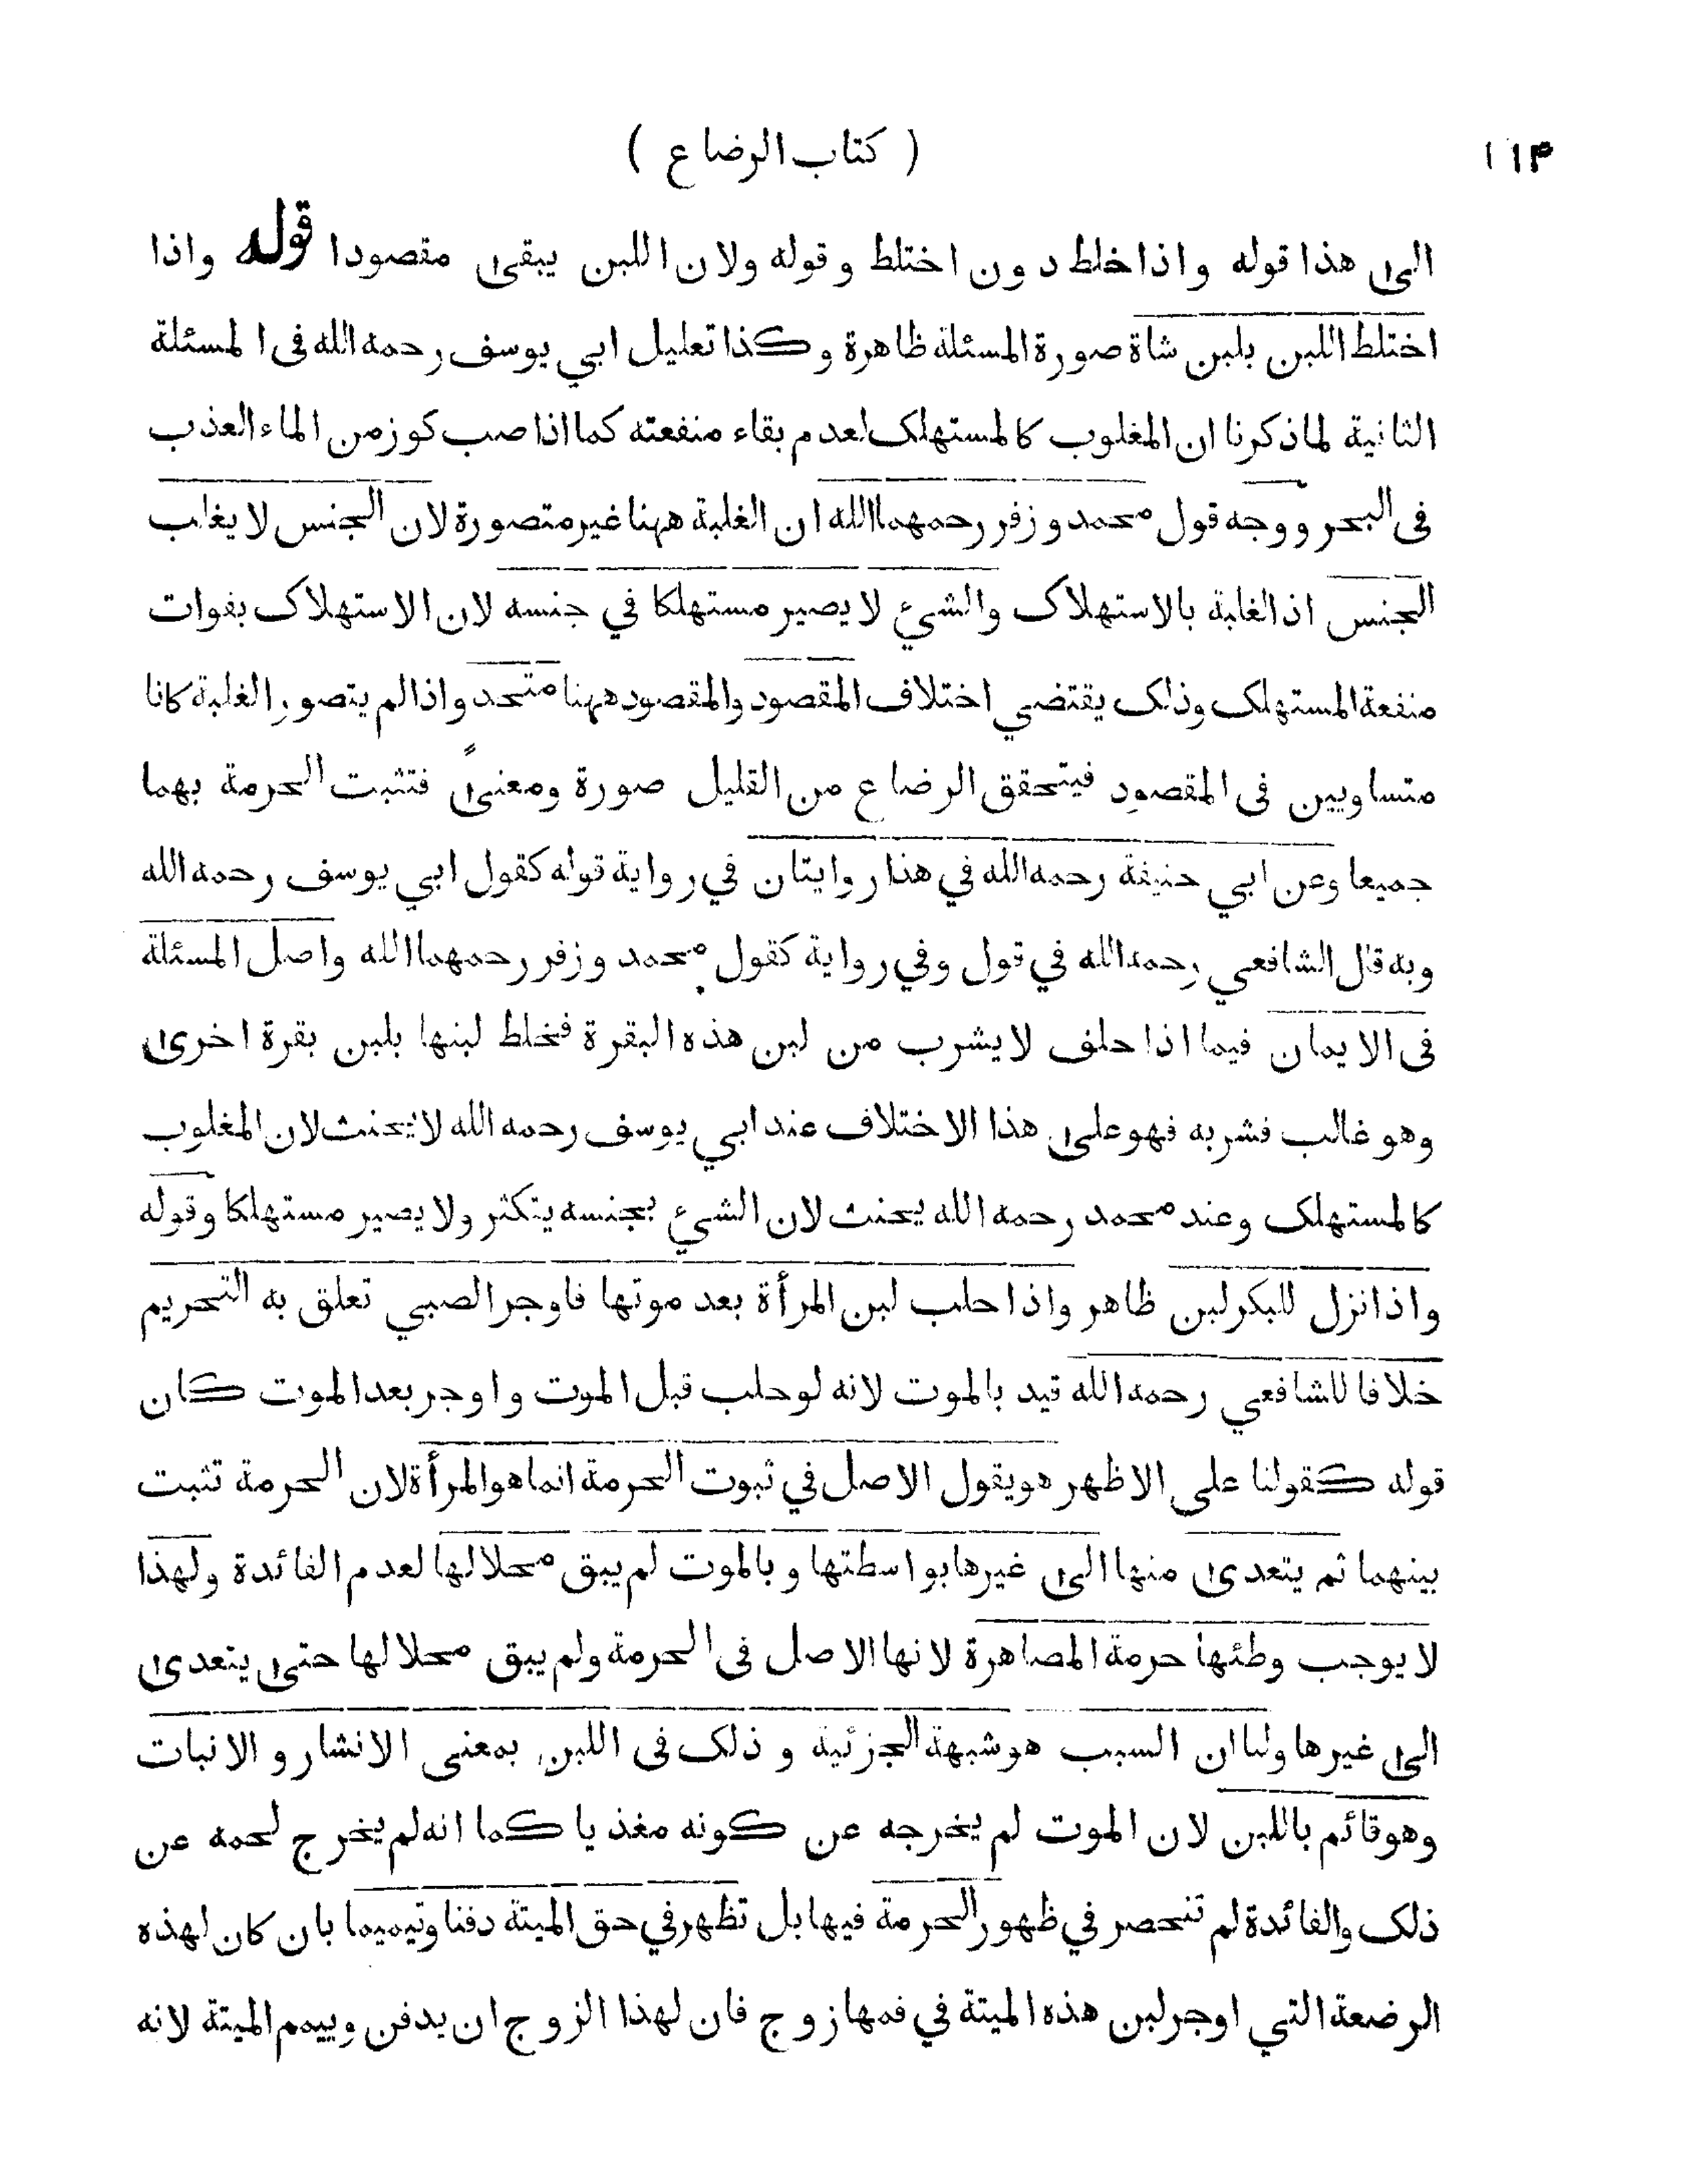 ( كتاب الرضاع ) ١١٣
الى هذا قوله واذا خلط دون اختلط وقوله ولان اللبن يبقى مقصودا قوله واذا
اختلط اللبن بلبن شاة صورة المسئلة ظاهرة وكذا تعليل ابي يوسف رحمه الله فى المسئلة
الثانية لماذكرنا ان المغلوب كالمستهلك لعدم بقاء منفعته كما اذا صب كوز من الماء العذب
فى البحر ووجه قول محمد وزفر رحمهما الله ان الغلبة ههنا غير متصورة لان الجنس لا يغلب
الجنس اذ الغلبة بالاستهلاك والشيء لا يصير مستهلكا في جنسه لان الاستهلاك بفوات
منفعة المستهلك وذلك يقتضي اختلاف المقصود والمقصود ههنا متحد واذا لم يتصور الغلبة كانا
متساويين فى المقصود فيتحقق الرضاع من القليل صورة ومعنىً فتثبت الحرمة بهما
جميعا وعن ابي حنيفة رحمه الله في هذا روايتان في رواية قوله كقول ابي يوسف رحمه الله
وبه قال الشافعي رحمه الله في قول وفي رواية كقول محمد وزفر رحمهما الله واصل المسئلة
فى الايمان فيما اذا حلف لا يشرب من لبن هذه البقرة فخلط لبنها بلبن بقرة اخرى
وهو غالب فشربه فهو على هذا الاختلاف عند ابي يوسف رحمه الله لا يحنث لان المغلوب
كالمستهلك وعند محمد رحمه الله يحنث لان الشيء بجنسه يتكثر ولا يصير مستهلكا وقوله
واذا نزل للبكر لبن ظاهر واذا حلب لبن المرأة بعد موتها فاوجر الصبي تعلق به التحريم
خلافا للشافعي رحمه الله قيد بالموت لانه لو حلب قبل الموت واوجر بعد الموت كان
قوله كقولنا على الاظهر هو يقول الاصل في ثبوت الحرمة انما هو المرأة لان الحرمة تثبت
بينهما ثم يتعدى منها الى غيرها بواسطتها وبالموت لم يبق محلا لها لعدم الفائدة ولهذا
لا يوجب وطئها حرمة المصاهرة لانها الاصل فى الحرمة ولم يبق محلا لها حتى يتعدى
الى غيرها ولنا ان السبب هو شبهة الجزئية وذلك فى اللبن بمعنى الانشار والانبات
وهو قائم باللبن لان الموت لم يخرجه عن كونه مغذيا كما انه لم يخرج لحمه عن
ذلك والفائدة لم تنحصر في ظهور الحرمة فيها بل تظهر في حق الميتة دفنا وتيميما بان كان لهذه
الرضعة التي اوجر لبن هذه الميتة في فمها زوج فان لهذا الزوج ان يدفن وييمم الميتة لانه